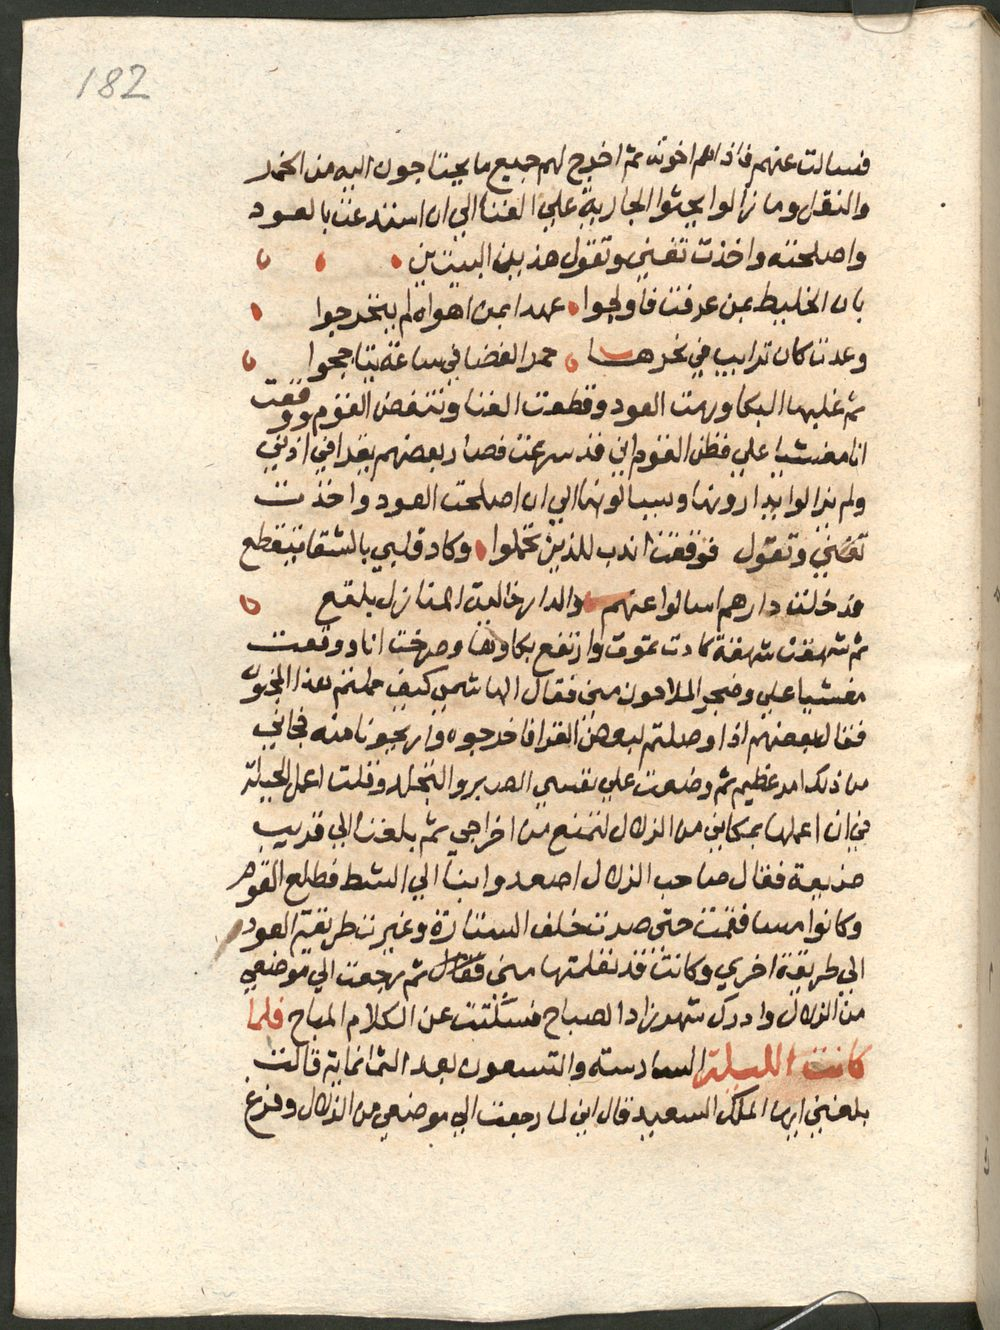 182
فسالت عنهم فاذا هم اخوته ثم اخرج لهم جميع ما يحتاجون اليه من الخمر
والنقل وما زالوا يحثوا الجارية علي الغنا الي ان استدعت بالعود
واصلحته واخذت تغني وتقول هذين البيتين
بان الخليط بمن عرفت فاولجوا عمدا بمن اهواه لم يتحرجوا
وعدت كان ترايب في نحرها جمر الغضا في ساعة يتاججوا
ثم غلبها البكا ورمت العود وقطعت الغنا وتنغص القوم ووقعت
انا مغشيا علي فظن القوم اني قد سرعت فصار بعضهم يقرا في اذني
ولم يزالوا يداروها ويسالوها الي ان اصلحت العود واخذت
تغني وتقول فوقفت اندب للذين تحملوا وكاد قلبي بالشقا يتقطع
فدخلت دارهم اسالوا عنهم والدار خالية المنازل بلقع
ثم شهقت شهقة كادت تموت وارتفع بكاوها وصرخت انا ووقعت
مغشيا علي وضجر الملاحون مني فقال الهاشمي كيف حملتم هذا المجنون
فقال بعضهم اذا وصلتم لبعض القرا فاخرجوه واريحونا منه فجاني
من ذلك امر عظيم ثم وضعت علي نفسي الصبر والتجلد وقلت اعمل الحيلة
في ان اعملها بمكاني من الزلال لتمنع من اخراجي ثم بلغنا الي قريب
ضيعة فقال صاحب الزلال اصعدوا بنا الي الشط فطلع القوم
وكانوا مسا فقمت حتي صرت خلف الستارة وغيرت طريقة العود
الي طريقة اخري وكانت قد نقلتها مني فقال ثم رجعت الي موضعي
من الزلال وادرك شهرزاد الصباح فسكتت عن الكلام المباح فلما
كانت الليلة السادسه والتسعون بعد الثمانماية قالت
بلغني ايها الملك السعيد قال اني لما رجعت الي موضعي من الزلال وفرغ